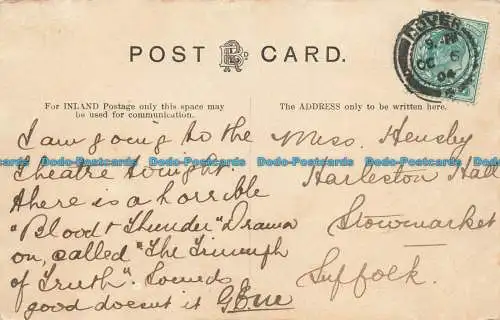 POST CARD.
For INLAND Postage only this space may
be used for communication.
The ADDRESS only to be written here.
DOVER
OC 6
04
I am going to the
Theatre tonight.
there is a horrible
"Blood & Thunder" Drama
on, called "The Triumph
of Truth". Sounds
good doesn't it
Miss. Hensby
Harleston Hall
Stowmarket
Suffolk.
Dodo-Postcards Dodo-Postcards Dodo-Postcards Dodo-Postcards Dodo-Postcards